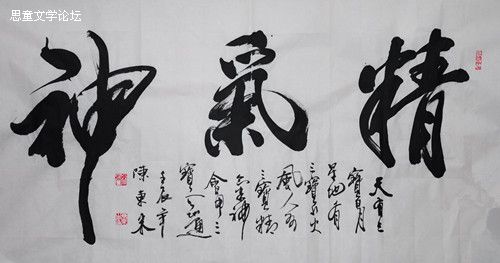 思童文学论坛
精氣神
天有三
寶日月
星地有
三寶水火
風人有
三寶精
氣神
三
寶 通
壬辰年
陳東